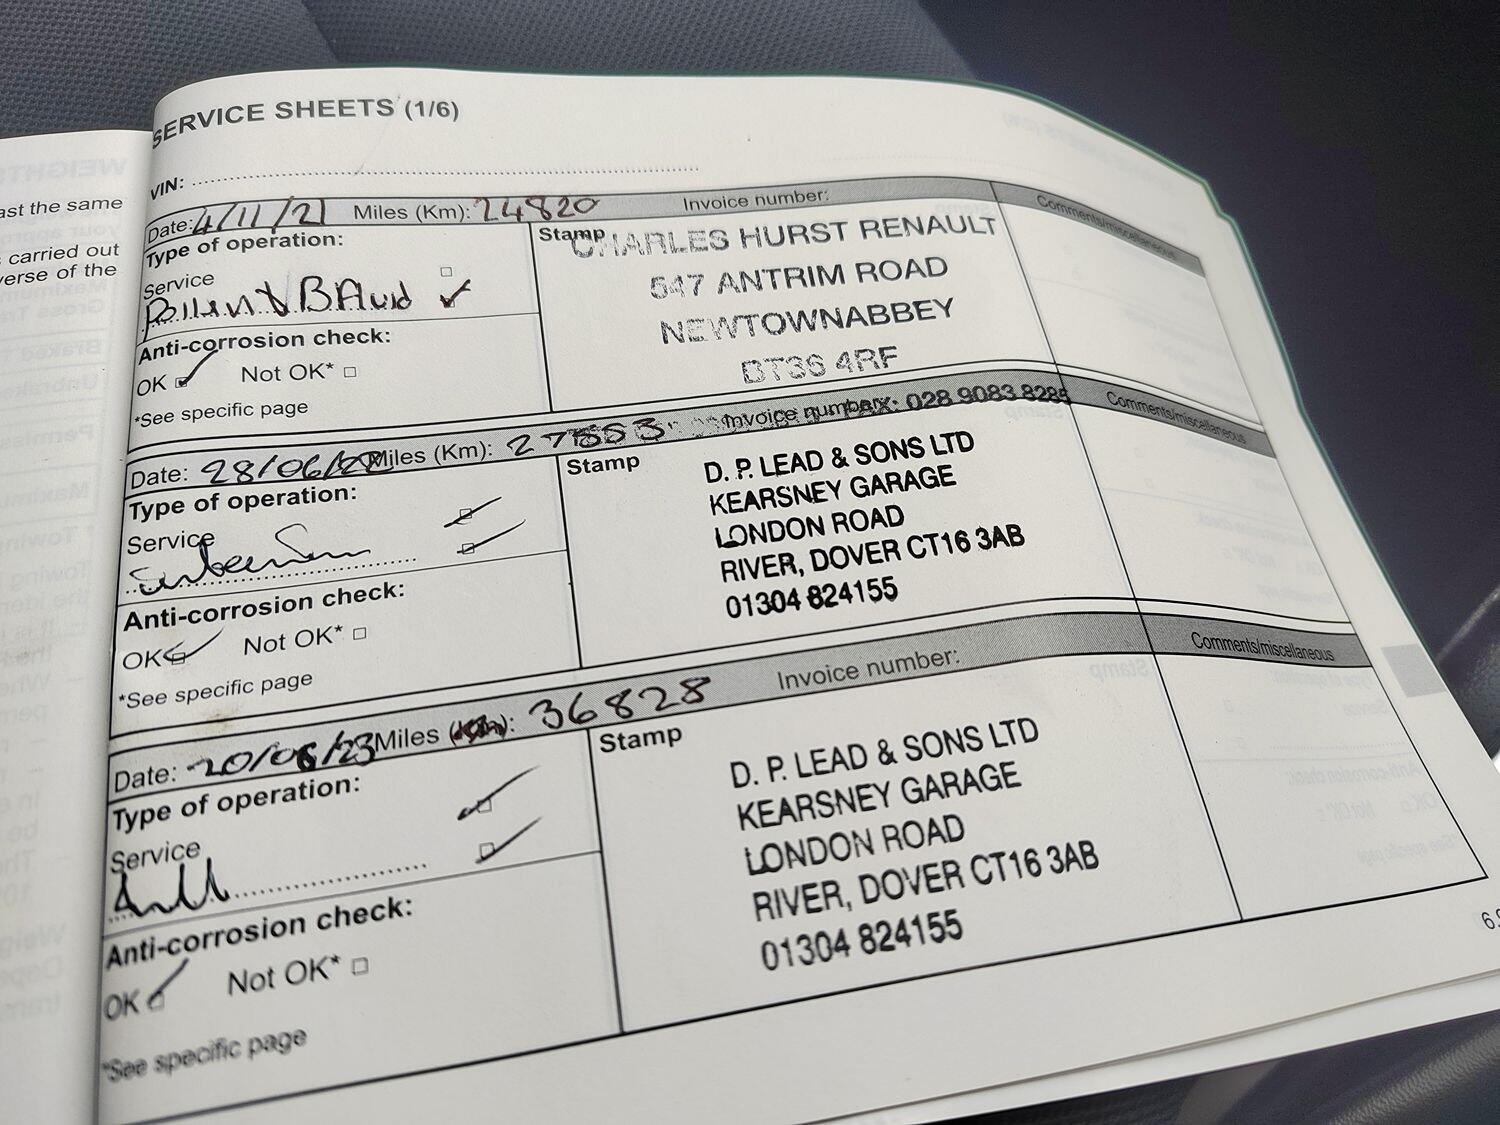 SERVICE SHEETS (1/6)
VIN:
Date: 4/11/21 Miles (Km): 24820 Invoice number: Comments/miscellaneous
Type of operation:
Service
Pollen & B Fluid
Anti-corrosion check:
OK Not OK*
*See specific page
Stamp
CHARLES HURST RENAULT
547 ANTRIM ROAD
NEWTOWNABBEY
BT36 4RF
FAX: 028 9083 8285
Date: 28/06/22 Miles (Km): 27553 Invoice number: Comments/miscellaneous
Type of operation:
Service
Anti-corrosion check:
OK Not OK*
*See specific page
Stamp
D. P. LEAD & SONS LTD
KEARSNEY GARAGE
LONDON ROAD
RIVER, DOVER CT16 3AB
01304 824155
Date: 20/06/23 Miles (Km): 36828 Invoice number: Comments/miscellaneous
Type of operation:
Service
Anti-corrosion check:
OK Not OK*
*See specific page
Stamp
D. P. LEAD & SONS LTD
KEARSNEY GARAGE
LONDON ROAD
RIVER, DOVER CT16 3AB
01304 824155
ast the same
carried out
verse of the